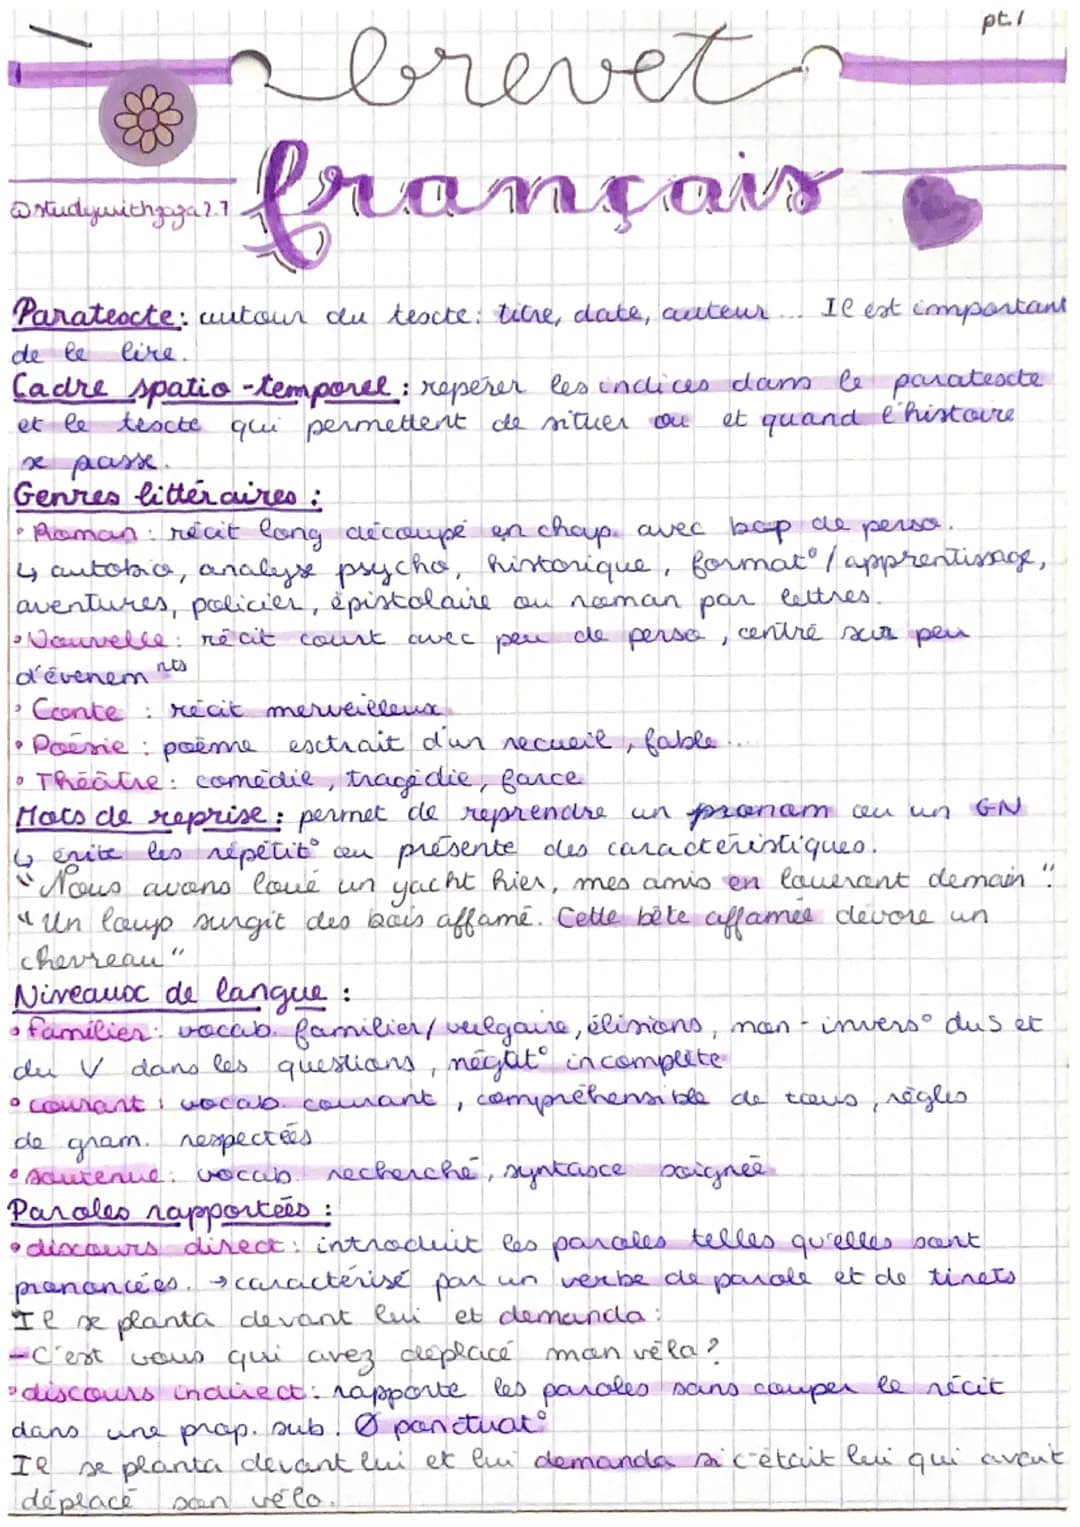 pt.1
brevet
français
@studywithgaga2.7
Paratexte : autour du texte : titre, date, auteur ... Il est important
de le lire.
Cadre spatio-temporel : repérer les indices dans le paratexte
et le texte qui permettent de situer ou et quand l'histoire
se passe.
Genres littéraires :
• Roman : récit long découpé en chap. avec bcp de perso.
↳ autobio, analyse psycho, historique, format° / apprentissage,
aventures, policier, épistolaire ou roman par lettres.
• Nouvelle : récit court avec peu de perso, centré sur peu
d'évenem nts
• Conte : récit merveilleux
• Poésie : poème extrait d'un recueil, fable ...
• Théâtre : comédie, tragédie, farce
Mots de reprise : permet de reprendre un pronom ou un GN
↳ évite les répétit° ou présente des caractéristiques.
"Nous avons loué un yacht hier, mes amis en loueront demain".
"Un loup surgit des bois affamé. Cette bête affamée dévore un
chevreau"
Niveaux de langue :
• familier : vocab. familier/vulgaire, élisions, non-invers° du S et
du V dans les questions, négat° incomplète
• courant : vocab. courant, compréhensible de tous, règles
de gram. respectées
• soutenue : vocab. recherché, syntaxe soignée
Paroles rapportées :
• discours direct : introduit les paroles telles qu'elles sont
prononcées. → caractérisé par un verbe de parole et de tirets
Il se planta devant lui et demanda :
- C'est vous qui avez déplacé mon vélo ?
• discours indirect : rapporte les paroles sans couper le récit
dans une prop. sub. Ø ponctuat°
Il se planta devant lui et lui demanda si c'était lui qui avait
déplacé son vélo.